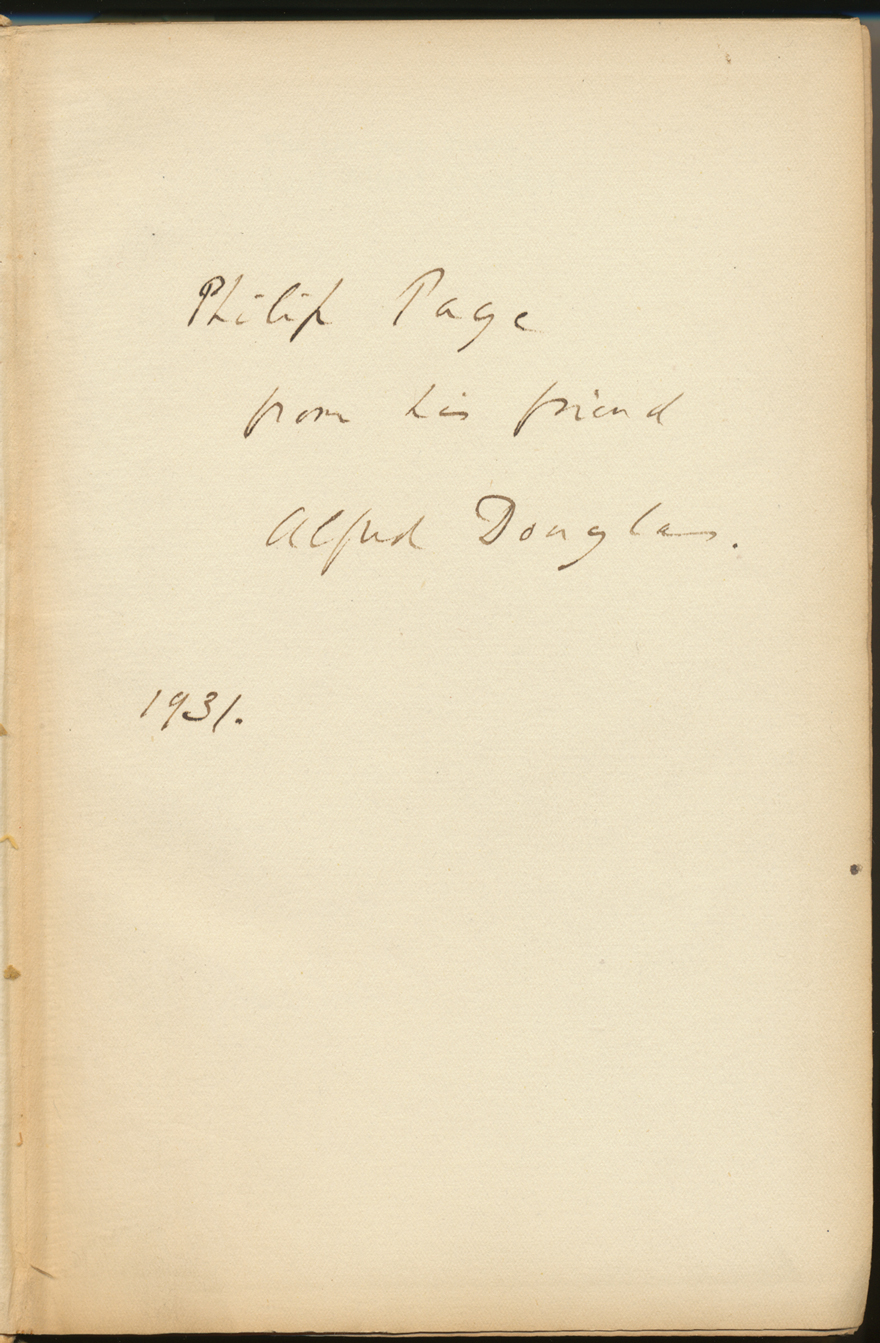 Philip Page
from his friend
Alfred Douglas.
1931.